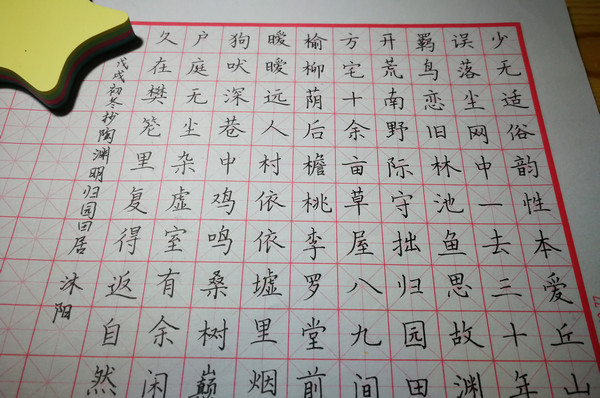 少无适俗韵性本爱丘山
误落尘网中一去三十年
羁鸟恋旧林池鱼思故渊
开荒南野际守拙归园田
方宅十余亩草屋八九间
榆柳荫后檐桃李罗堂前
暧暧远人村依依墟里烟
狗吠深巷中鸡鸣桑树巅
户庭无尘杂虚室有余闲
久在樊笼里复得返自然
戊戌初冬抄陶渊明归园田居 沐阳